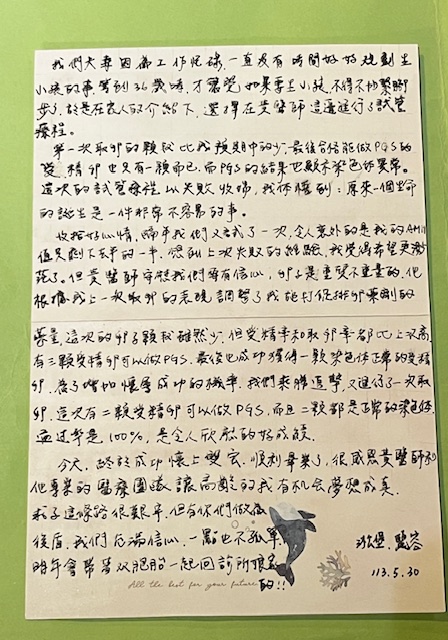 我們夫妻因為工作忙碌,一直沒有時間好好規劃生
小孩的事,等到36歲時,才驚覺如果要生小孩,不得不加緊腳
步了,於是在家人的介紹下,選擇在黃醫師這邊進行了試管
療程。
第一次取卵的顆數比我預期中的少,最後合格能做PGS的
受精卵也只有一顆而已,而PGS的結果也顯示染色體異常。
這次的試管療程以失敗收場,我体懷到:原來一個生命
的誕生是一件非常不容易的事。
收拾好心情,隔年我們又試了一次,令人意外的是我的AMH
值只剩下去年的一半,想到上次失敗的經驗,我覺得希望更渺
茫了。但黃醫師安慰我們要有信心,卵子是重質不重量的,他
根據我上一次取卵的表現調整了我施打促排卵藥劑的
劑量,這次的卵子顆數雖然少,但受精率和取卵率都比上次高,
有三顆受精卵可以做PGS,最後也成功獲得一顆染色体正常的受精
卵。為了增加懷孕成功的機率,我們乘勝追擊,又進行了一次取
卵,這次有二顆受精卵可以做PGS,而且二顆都是正常的染色体,
過率是100%,是令人欣慰的好成績。
今天,終於成功懷上雙宝,順利畢業了,很感恩黃醫師和
他專業的醫療團隊,讓高齡的我有机会夢想成真。
求子這條路很艱辛,但有你們做後
後盾,我們充滿信心,一點也不孤單,
明年會帶著双胞胎一起回診所報喜
的!!
All the best for your future.
113.5.30